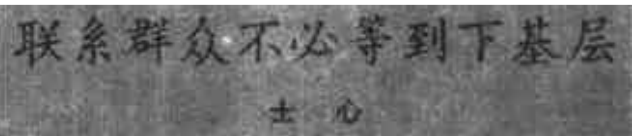 联系群众不必等到下基层
士心